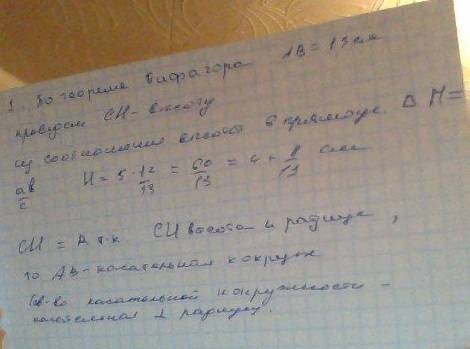 1. По теореме Пифагора AB = 13 см
проведем CH - высоту
из соотношения высоты в прямоуг. Δ H =
ab/c H = 5·12/13 = 60/13 = 4 + 8/13 см
CH = R т.к. CH высота и радиус,
то AB - касательная к окруж
(св-во касательной к окружности -
касательная ⊥ радиусу.